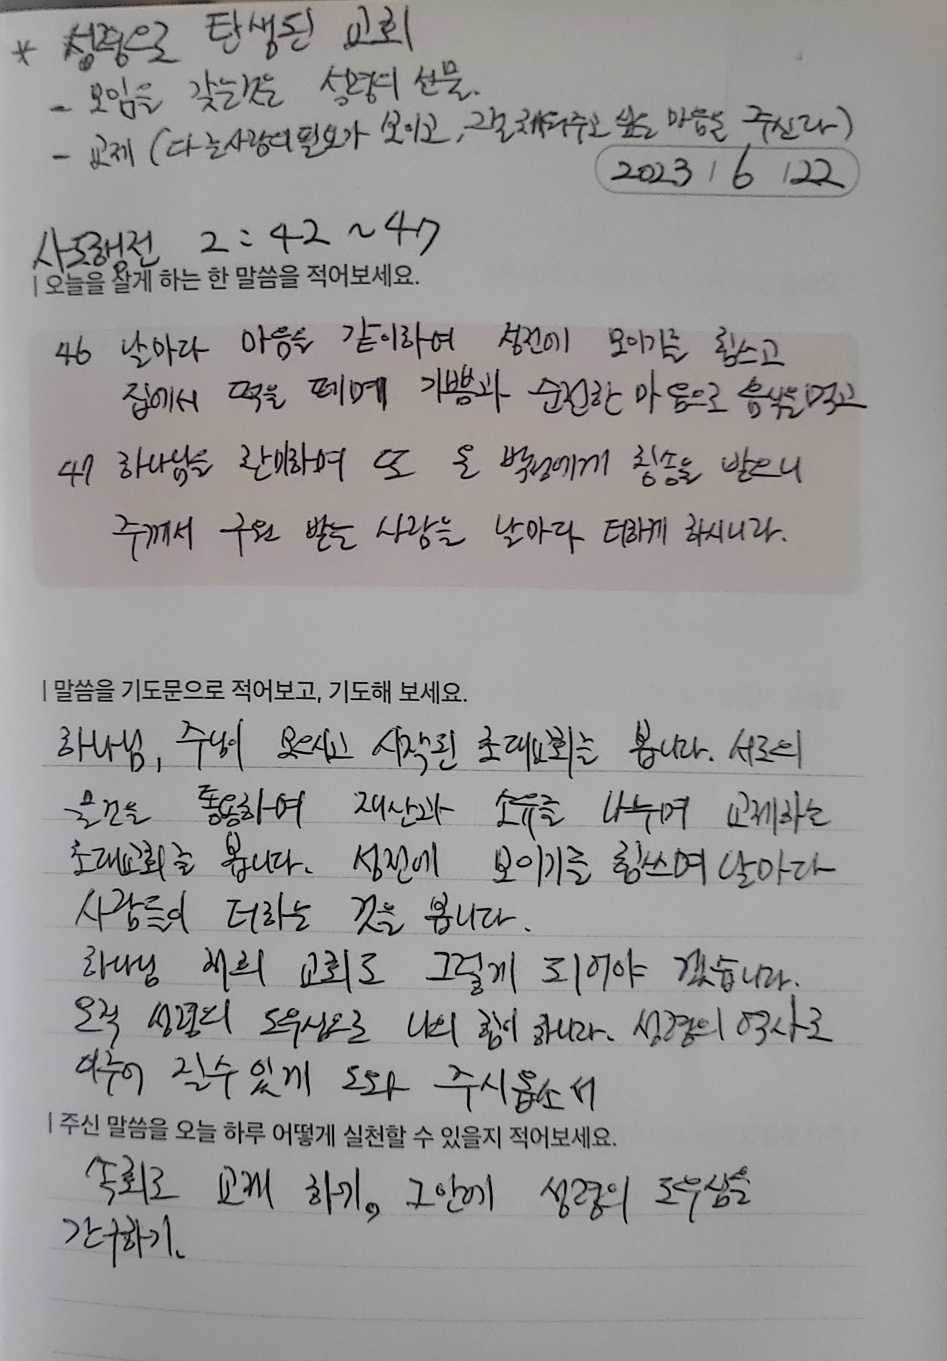 * 성령으로 탄생된 교회
- 모임을 갖는것은 성령의 선물.
- 교제 (다른사람의 필요가 보이고, 그걸 채워주고 싶은 마음을 주신다)
2023 / 6 / 22
사도행전 2 : 42 ~ 47
| 오늘을 살게 하는 한 말씀을 적어보세요.
46 날마다 마음을 같이하여 성전에 모이기를 힘쓰고
집에서 떡을 떼며 기쁨과 순전한 마음으로 음식을 먹고
47 하나님을 찬미하며 또 온 백성에게 칭송을 받으니
주께서 구원 받는 사람을 날마다 더하게 하시니라.
| 말씀을 기도문으로 적어보고, 기도해 보세요.
하나님, 주님이 시작된 초대교회를 봅니다. 서로의
물건을 통용하여 재산과 소유를 나누며 교제하는
초대교회를 봅니다. 성전에 모이기를 힘쓰며 날마다
사람들이 더하는 것을 봅니다.
하나님 저희 교회도 그렇게 되어야 겠습니다.
오직 성령의 도우심으로 나의 힘이 하니다. 성령의 역사로
이루어 질수 있게 도와 주시옵소서
| 주신 말씀을 오늘 하루 어떻게 실천할 수 있을지 적어보세요.
속회로 교제 하기, 그안에 성령의 도우심을
간구하기.